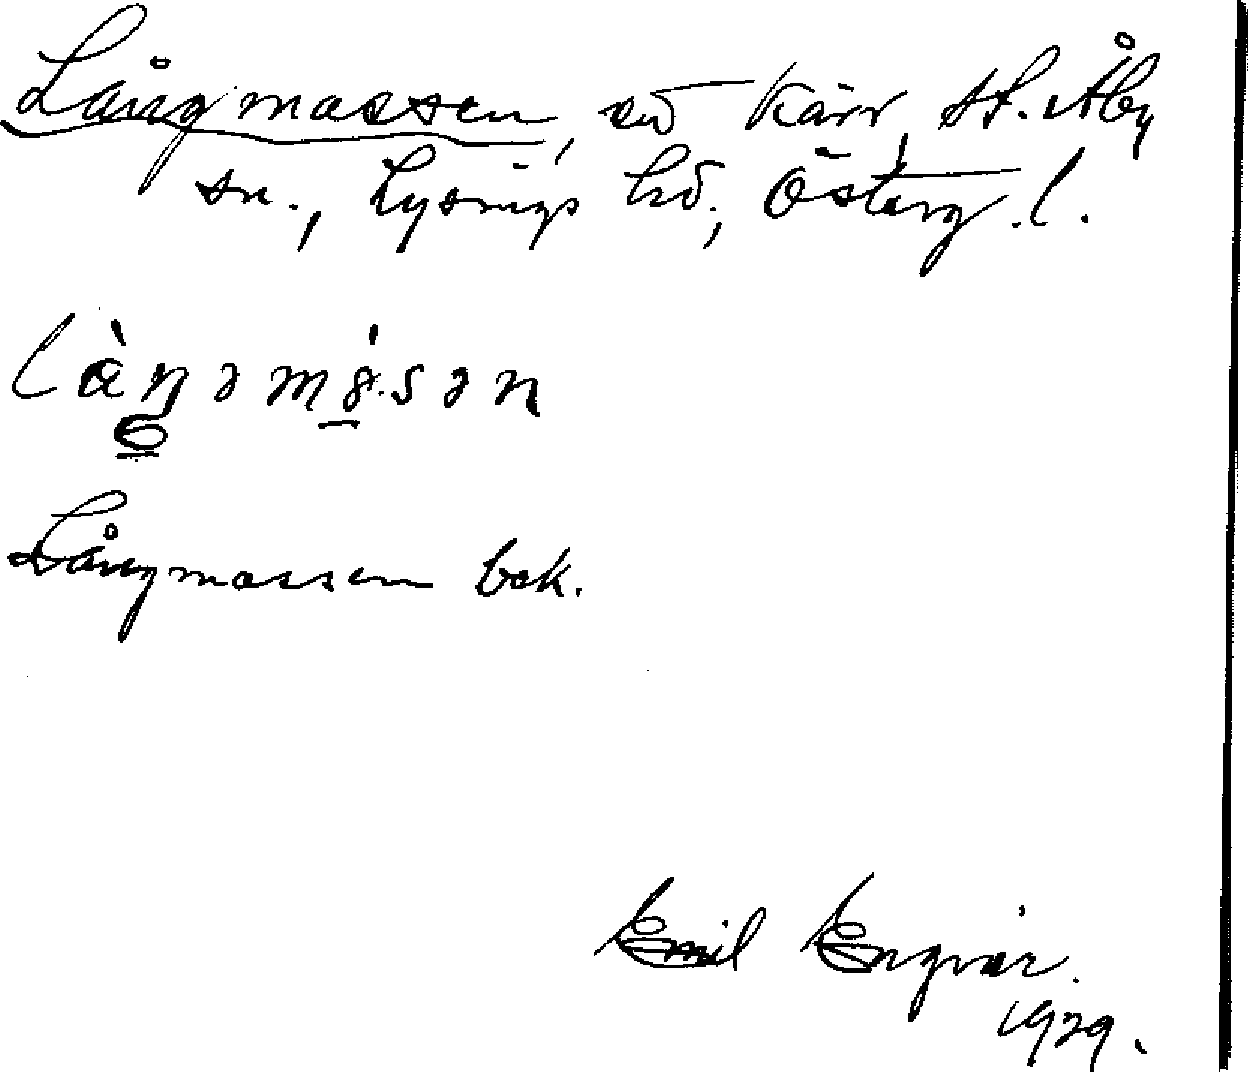 Långmossen, sid kärr, St. Åby
sn., Lysings hd., Österg.l.
làŋəmǫ́.sən
Långmossen bok.
Emil Engvár.
1929.